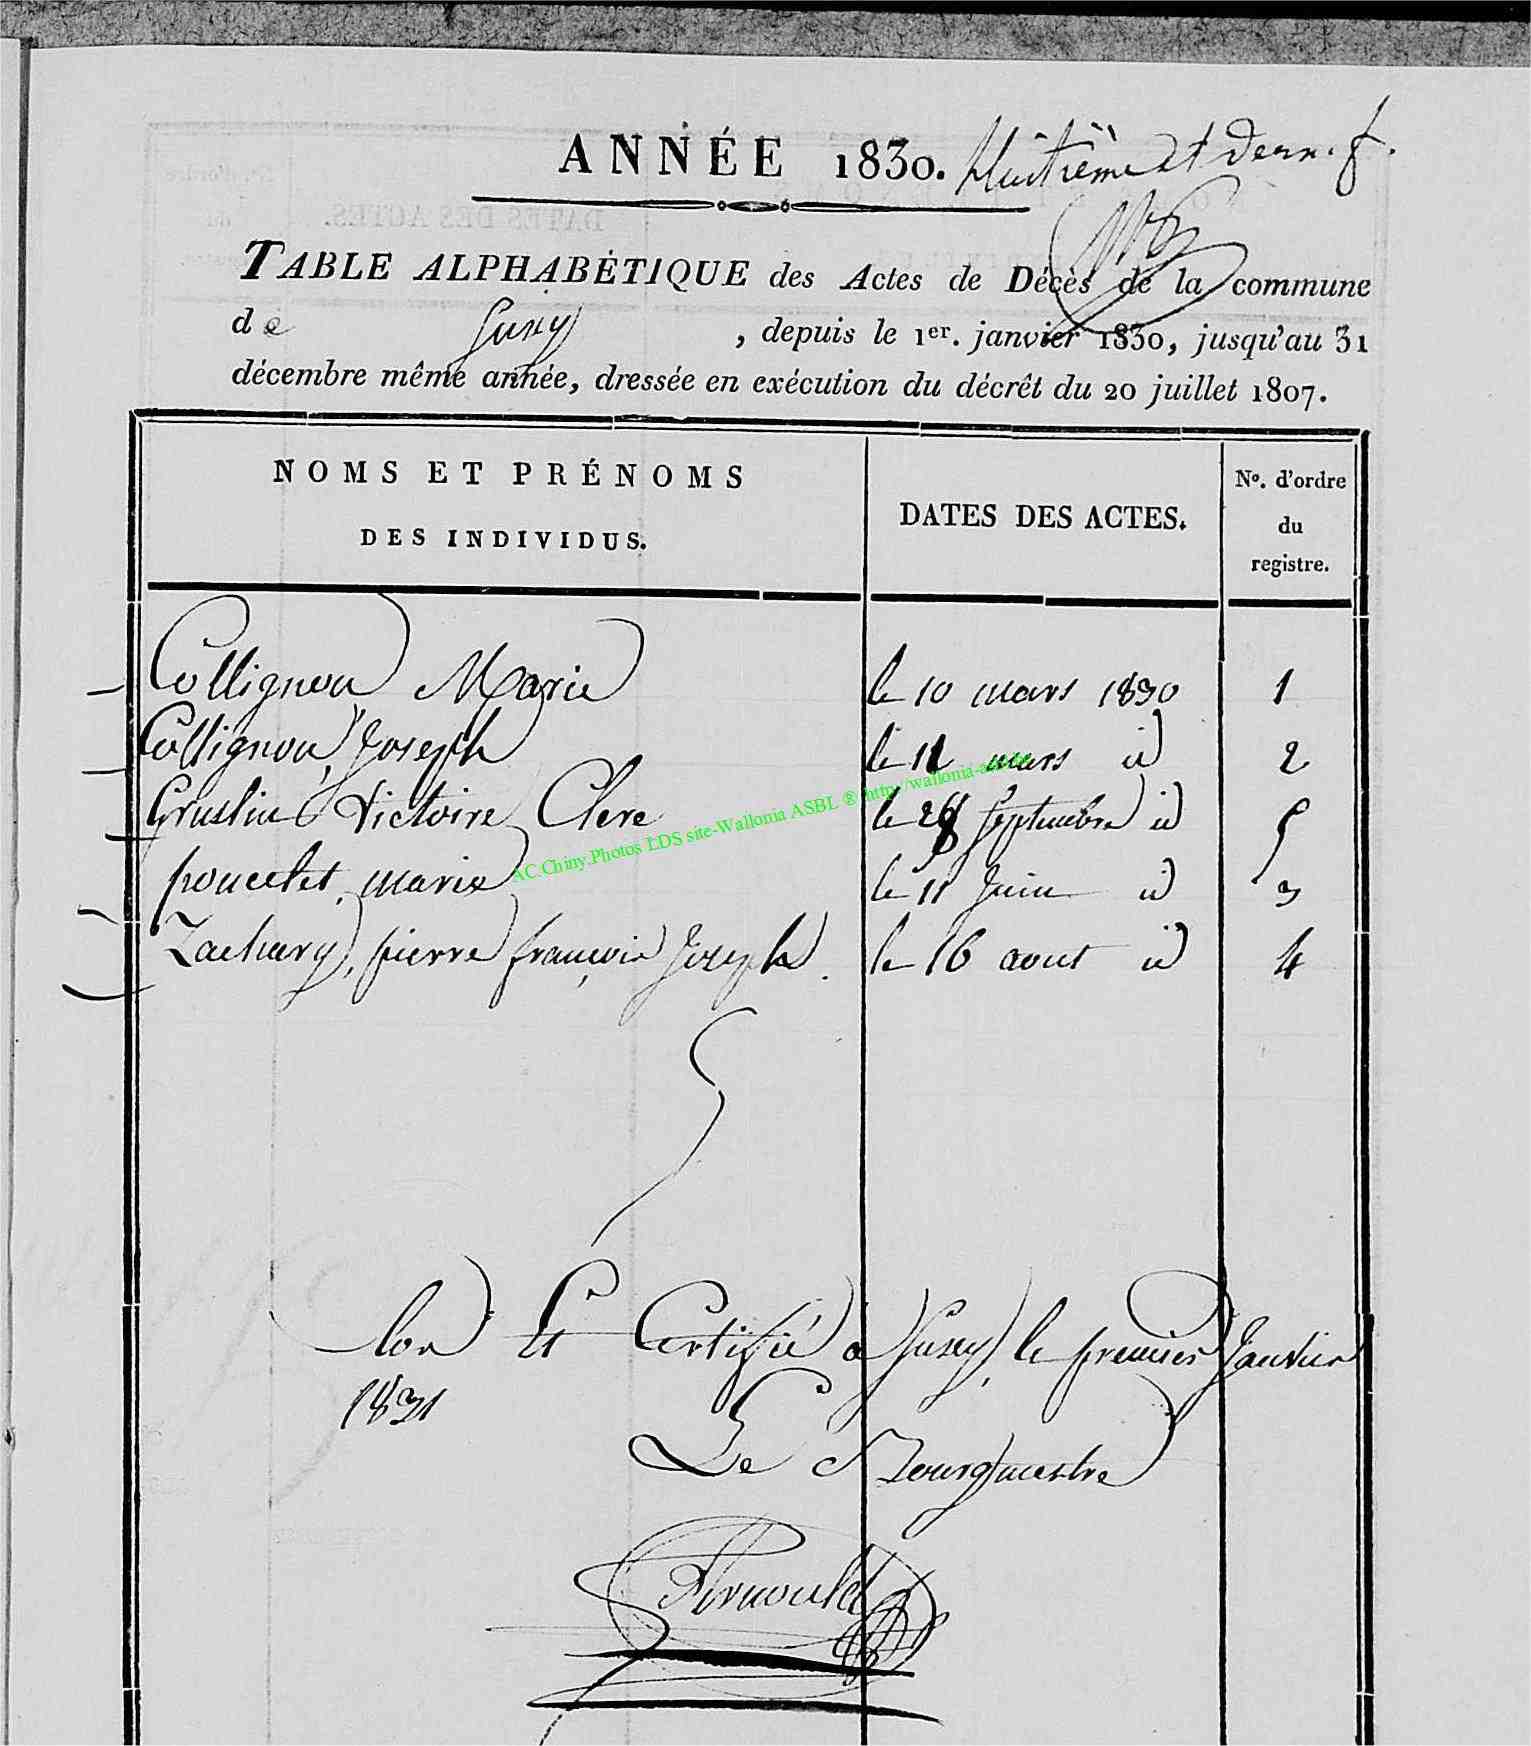 ANNÉE 1830. Huitième et dern. f.
TABLE ALPHABÉTIQUE des Actes de Décès de la commune
de Suxy, depuis le 1er. janvier 1830, jusqu'au 31
décembre même année, dressée en exécution du décrêt du 20 juillet 1807.
NOMS ET PRÉNOMS
DES INDIVIDUS.
DATES DES ACTES.
No. d'ordre
du
registre.
Collignon Marie le 10 mars 1830 1
Collignon, Joseph le 11 mars id 2
Gruslin Victoire Clere le 28 septembre id 5
poncelet, marie le 11 Juin id 3
Zachary, pierre françois Joseph. le 16 aout id 4
Clos Et Certifié à Suxy, le premier Janvier
1831
Le Bourgmestre
Arnould
AC.Chiny.Photos LDS site-Wallonia ASBL ® http://wallonia-asbl.be